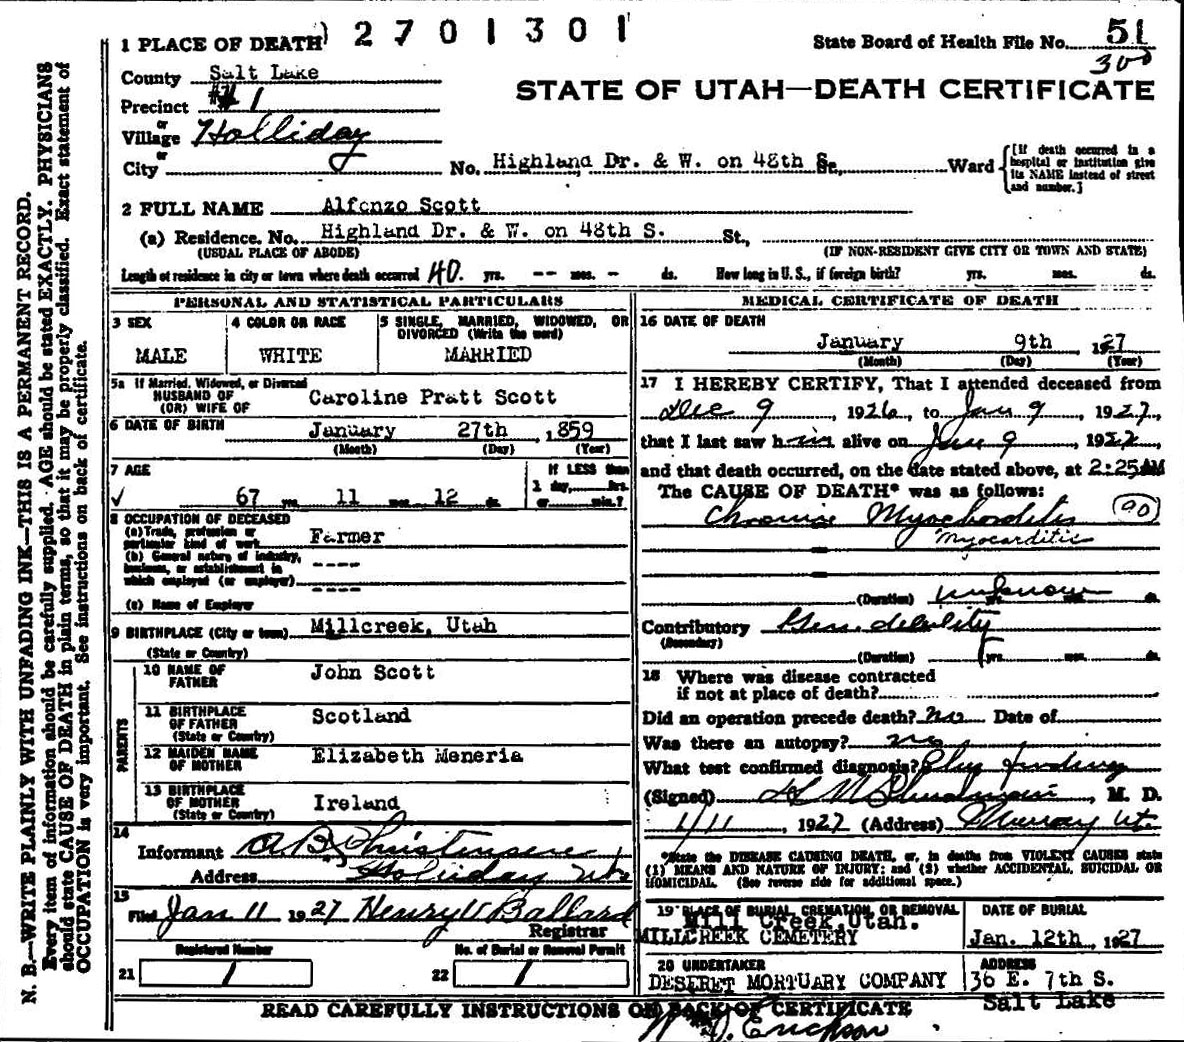 2701301
1 PLACE OF DEATH
State Board of Health File No. 51
300
County Salt Lake
STATE OF UTAH—DEATH CERTIFICATE
Precinct #1
or
Village Holliday
or
City No. Highland Dr. & W. on 48th St., Ward
[If death occurred in a hospital or institution give its NAME instead of street and number.]
2 FULL NAME Alfonzo Scott
(a) Residence. No. Highland Dr. & W. on 48th S. St.,
(USUAL PLACE OF ABODE) (IF NON-RESIDENT GIVE CITY OR TOWN AND STATE)
Length of residence in city or town where death occurred 40. yrs. -- mos. - ds. How long in U.S., if foreign birth? yrs. mos. ds.
PERSONAL AND STATISTICAL PARTICULARS
3 SEX
MALE
4 COLOR OR RACE
WHITE
5 SINGLE, MARRIED, WIDOWED, OR
DIVORCED (Write the word)
MARRIED
5a If Married, Widowed, or Divorced
HUSBAND OF
(OR) WIFE OF Caroline Pratt Scott
6 DATE OF BIRTH January 27th, 1859
(Month) (Day) (Year)
7 AGE
67 yrs. 11 mos. 12 ds.
If LESS than
1 day, hrs.
or min.?
8 OCCUPATION OF DECEASED
(a) Trade, profession or
particular kind of work Farmer
(b) General nature of industry,
business, or establishment in ----
which employed (or employer) ----
(c) Name of Employer
9 BIRTHPLACE (City or town) Millcreek, Utah
(State or Country)
PARENTS
10 NAME OF
FATHER John Scott
11 BIRTHPLACE
OF FATHER Scotland
(State or Country)
12 MAIDEN NAME
OF MOTHER Elizabeth Meneria
13 BIRTHPLACE
OF MOTHER Ireland
(State or Country)
14
Informant A B Christensen
Address Holliday Ut
15
Filed Jan 11 1927 Henry V Ballard
Registrar
Registered Number No. of Burial or Removal Permit
21 1 22 1
MEDICAL CERTIFICATE OF DEATH
16 DATE OF DEATH
January 9th, 1927
(Month) (Day) (Year)
17 I HEREBY CERTIFY, That I attended deceased from
Dec 9, 1926, to Jan 9, 1927,
that I last saw him alive on Jan 9, 1927
and that death occurred, on the date stated above, at 2:25AM
The CAUSE OF DEATH* was as follows:
Chronic Myochorditis (90)
Myocarditis
(Duration) unknown yrs. ds.
Contributory Gen. debility
(Secondary)
(Duration) yrs. mos. ds.
18 Where was disease contracted
if not at place of death?
Did an operation precede death? no Date of
Was there an autopsy? no
What test confirmed diagnosis? Phy findings
(Signed) M. D.
1/11, 1927 (Address) Murray Ut.
*State the DISEASE CAUSING DEATH, or, in deaths from VIOLENT CAUSES state
(1) MEANS AND NATURE OF INJURY; and (2) whether ACCIDENTAL, SUICIDAL OR
HOMICIDAL. (See reverse side for additional space.)
19 PLACE OF BURIAL, CREMATION, OR REMOVAL
Mill Creek, Utah.
MILLCREEK CEMETERY
DATE OF BURIAL
Jan. 12th, 1927
20 UNDERTAKER
DESERET MORTUARY COMPANY
ADDRESS
36 E. 7th S.
Salt Lake
READ CAREFULLY INSTRUCTIONS ON BACK OF CERTIFICATE
Erickson
N. B.—WRITE PLAINLY WITH UNFADING INK—THIS IS A PERMANENT RECORD.
Every item of information should be carefully supplied. AGE should be stated EXACTLY. PHYSICIANS
should state CAUSE OF DEATH in plain terms, so that it may be properly classified. Exact statement of
OCCUPATION is very important. See instructions on back of certificate.